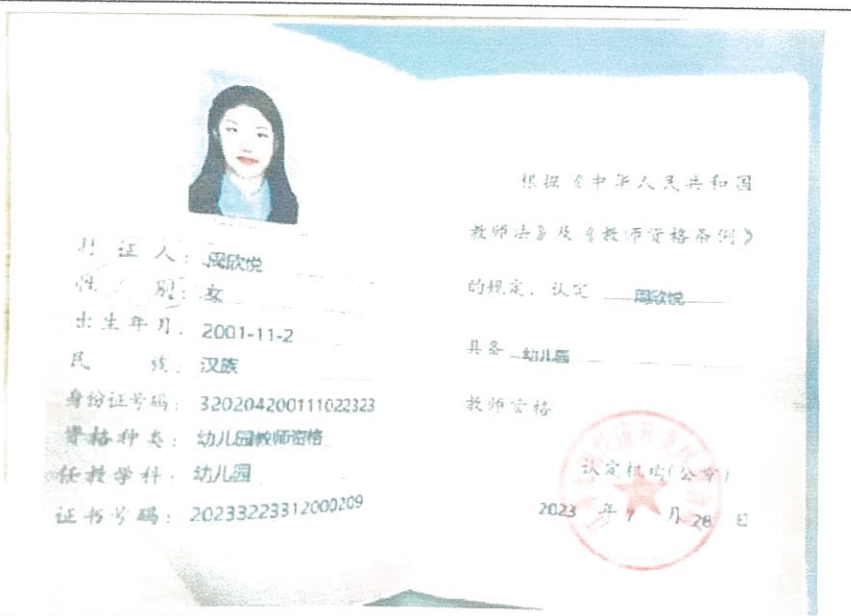 持证人：周欣悦
性别：女
出生年月：2001-11-2
民族：汉族
身份证号码：320204200111022323
资格种类：幼儿园教师资格
任教学科：幼儿园
证书号码：20233223312000209
根据《中华人民共和国
教师法》及《教师资格条例》
的规定，认定 周欣悦
具备 幼儿园
教师资格
认定机构(公章)
2023 年 7 月 28 日